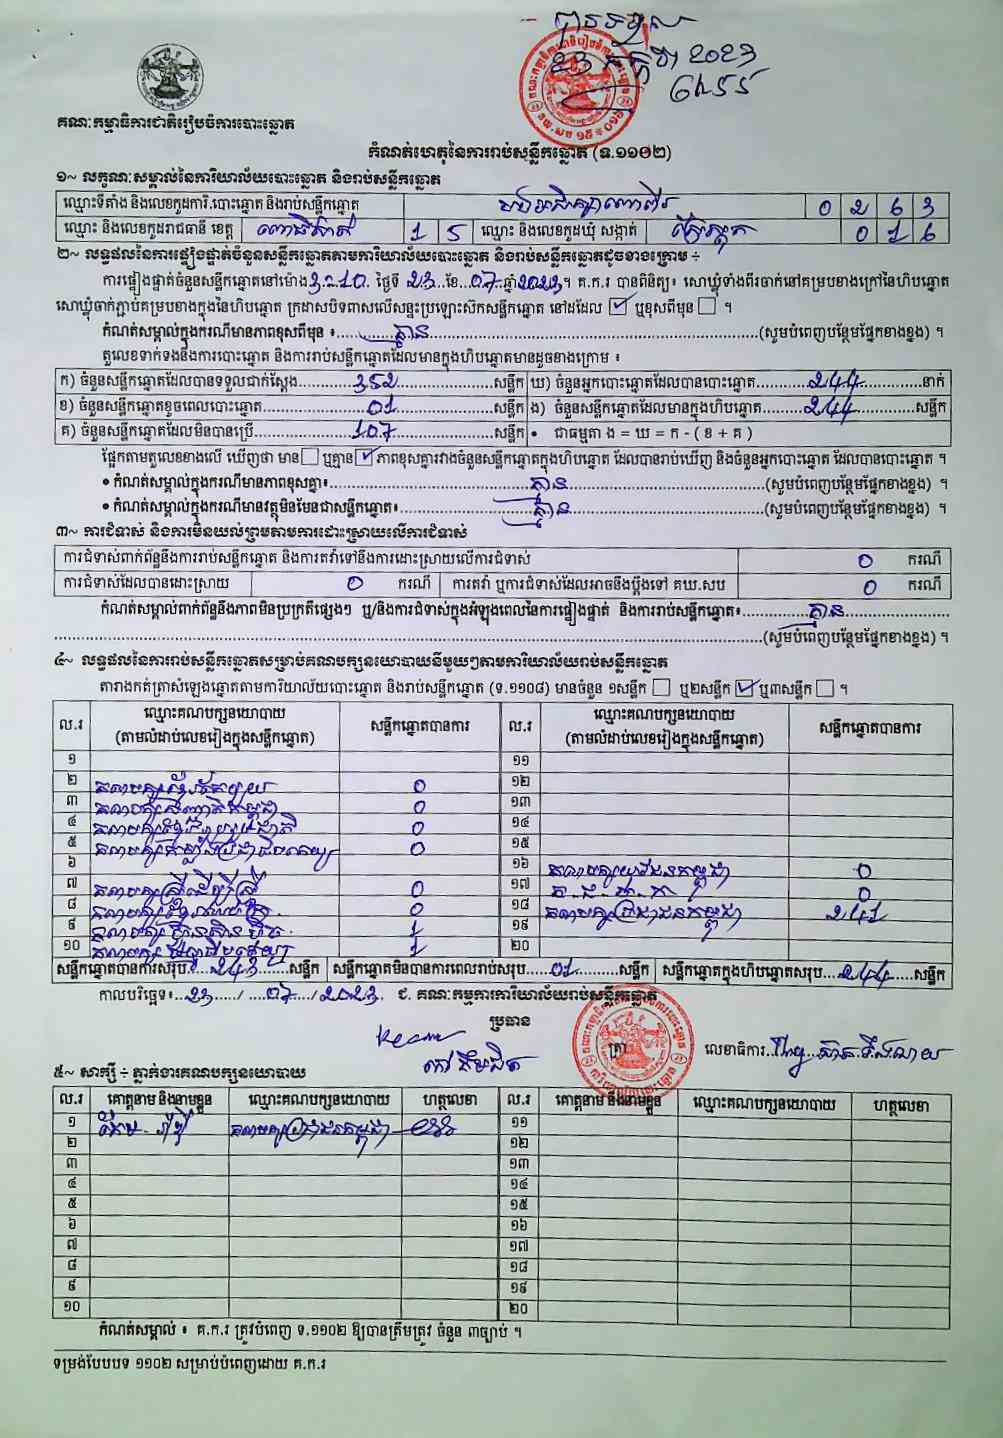 គណៈកម្មាធិការជាតិរៀបចំការបោះឆ្នោត
បានទទួល
23 កក្កដា 2023
កំណត់ហេតុនៃការរាប់សន្លឹកឆ្នោត (ទ.១១០២)
១~ លក្ខណៈសម្គាល់នៃការិយាល័យបោះឆ្នោត និងរាប់សន្លឹកឆ្នោត
ឈ្មោះទីតាំង និងលេខកូដការិ.បោះឆ្នោត និងរាប់សន្លឹកឆ្នោត 0 2 6 3
ឈ្មោះ និងលេខកូដរាជធានី ខេត្ត ពោធិ៍សាត់ 1 5 ឈ្មោះ និងលេខកូដឃុំ សង្កាត់ 0 1 6
២~ លទ្ធផលនៃការផ្ទៀងផ្ទាត់ចំនួនសន្លឹកឆ្នោតតាមការិយាល័យបោះឆ្នោត និងរាប់សន្លឹកឆ្នោតដូចខាងក្រោម ÷
ការផ្ទៀងផ្ទាត់ចំនួនសន្លឹកឆ្នោតនៅម៉ោង 3:10 ថ្ងៃទី 23 ខែ 07 ឆ្នាំ 2023 ។ គ.ក.រ បានពិនិត្យ៖ សោឃ្លុំទាំងពីរចាក់នៅគម្របខាងក្រៅនៃហិបឆ្នោត
សោឃ្លុំចាក់ភ្ជាប់គម្របខាងក្នុងនៃហិបឆ្នោត ក្រដាសបិទពាសលើសន្ទះប្រឡោះស៊កសន្លឹកឆ្នោត នៅដដែល ☑ ឬខុសពីមុន ☐ ។
កំណត់សម្គាល់ក្នុងករណីមានភាពខុសពីមុន ៖ គ្មាន (សូមបំពេញបន្ថែមផ្នែកខាងខ្នង) ។
តួលេខទាក់ទងនឹងការបោះឆ្នោត និងការរាប់សន្លឹកឆ្នោតដែលមានក្នុងហិបឆ្នោតមានដូចខាងក្រោម ៖
ក) ចំនួនសន្លឹកឆ្នោតដែលបានទទួលជាក់ស្តែង 352 សន្លឹក ឃ) ចំនួនអ្នកបោះឆ្នោតដែលបានបោះឆ្នោត 244 នាក់
ខ) ចំនួនសន្លឹកឆ្នោតខូចពេលបោះឆ្នោត 01 សន្លឹក ង) ចំនួនសន្លឹកឆ្នោតដែលមានក្នុងហិបឆ្នោត 244 សន្លឹក
គ) ចំនួនសន្លឹកឆ្នោតដែលមិនបានប្រើ 107 សន្លឹក • ជាធម្មតា ង = ឃ = ក - ( ខ + គ )
ផ្អែកតាមតួលេខខាងលើ ឃើញថា មាន ☐ ឬគ្មាន ☑ ភាពខុសគ្នារវាងចំនួនសន្លឹកឆ្នោតក្នុងហិបឆ្នោត ដែលបានរាប់ឃើញ និងចំនួនអ្នកបោះឆ្នោត ដែលបានបោះឆ្នោត ។
• កំណត់សម្គាល់ក្នុងករណីមានភាពខុសគ្នា៖ គ្មាន (សូមបំពេញបន្ថែមផ្នែកខាងខ្នង) ។
• កំណត់សម្គាល់ក្នុងករណីមានវត្ថុមិនមែនជាសន្លឹកឆ្នោត៖ គ្មាន (សូមបំពេញបន្ថែមផ្នែកខាងខ្នង) ។
៣~ ការជំទាស់ និងការមិនយល់ព្រមតាមការដោះស្រាយលើការជំទាស់
ការជំទាស់ពាក់ព័ន្ធនឹងការរាប់សន្លឹកឆ្នោត និងការតវ៉ាទៅនឹងការដោះស្រាយលើការជំទាស់ 0 ករណី
ការជំទាស់ដែលបានដោះស្រាយ 0 ករណី ការតវ៉ា ឬការជំទាស់ដែលអាចនឹងប្តឹងទៅ គឃ.សប 0 ករណី
កំណត់សម្គាល់ពាក់ព័ន្ធនឹងភាពមិនប្រក្រតីផ្សេងៗ ឬ/និងការជំទាស់ក្នុងអំឡុងពេលនៃការផ្ទៀងផ្ទាត់ និងការរាប់សន្លឹកឆ្នោត៖ គ្មាន
(សូមបំពេញបន្ថែមផ្នែកខាងខ្នង) ។
៤~ លទ្ធផលនៃការរាប់សន្លឹកឆ្នោតសម្រាប់គណបក្សនយោបាយនីមួយៗតាមការិយាល័យរាប់សន្លឹកឆ្នោត
តារាងកត់ត្រាសំឡេងឆ្នោតតាមការិយាល័យបោះឆ្នោត និងរាប់សន្លឹកឆ្នោត (ទ.១១០៨) មានចំនួន ១សន្លឹក ☐ ឬ២សន្លឹក ☑ ឬ៣សន្លឹក ☐ ។
ល.រ ឈ្មោះគណបក្សនយោបាយ (តាមលំដាប់លេខរៀងក្នុងសន្លឹកឆ្នោត) សន្លឹកឆ្នោតបានការ ល.រ ឈ្មោះគណបក្សនយោបាយ (តាមលំដាប់លេខរៀងក្នុងសន្លឹកឆ្នោត) សន្លឹកឆ្នោតបានការ
១ ១១
២ 0 ១២
៣ 0 ១៣
៤ 0 ១៤
៥ 0 ១៥
៦ ១៦ គណបក្សយុវជនកម្ពុជា 0
៧ គណបក្សស្ត្រីដើម្បីស្ត្រី 0 ១៧ 0
៨ 0 ១៨ គណបក្សប្រជាជនកម្ពុជា 241
៩ 1 ១៩
១០ 1 ២០
សន្លឹកឆ្នោតបានការសរុប 243 សន្លឹក សន្លឹកឆ្នោតមិនបានការពេលរាប់សរុប 01 សន្លឹក សន្លឹកឆ្នោតក្នុងហិបឆ្នោតសរុប 244 សន្លឹក
កាលបរិច្ឆេទ៖ 23 / 07 / 2023 ជ. គណៈកម្មការការិយាល័យរាប់សន្លឹកឆ្នោត
ប្រធាន
ត្រា លេខាធិការ
៥~ សាក្សី ÷ ភ្នាក់ងារគណបក្សនយោបាយ
ល.រ គោត្តនាម និងនាមខ្លួន ឈ្មោះគណបក្សនយោបាយ ហត្ថលេខា ល.រ គោត្តនាម និងនាមខ្លួន ឈ្មោះគណបក្សនយោបាយ ហត្ថលេខា
១ គណបក្សប្រជាជនកម្ពុជា ១១
២ ១២
៣ ១៣
៤ ១៤
៥ ១៥
៦ ១៦
៧ ១៧
៨ ១៨
៩ ១៩
១០ ២០
កំណត់សម្គាល់ ៖ គ.ក.រ ត្រូវបំពេញ ទ.១១០២ ឱ្យបានត្រឹមត្រូវ ចំនួន ៣ច្បាប់ ។
ទម្រង់បែបបទ ១១០២ សម្រាប់បំពេញដោយ គ.ក.រ